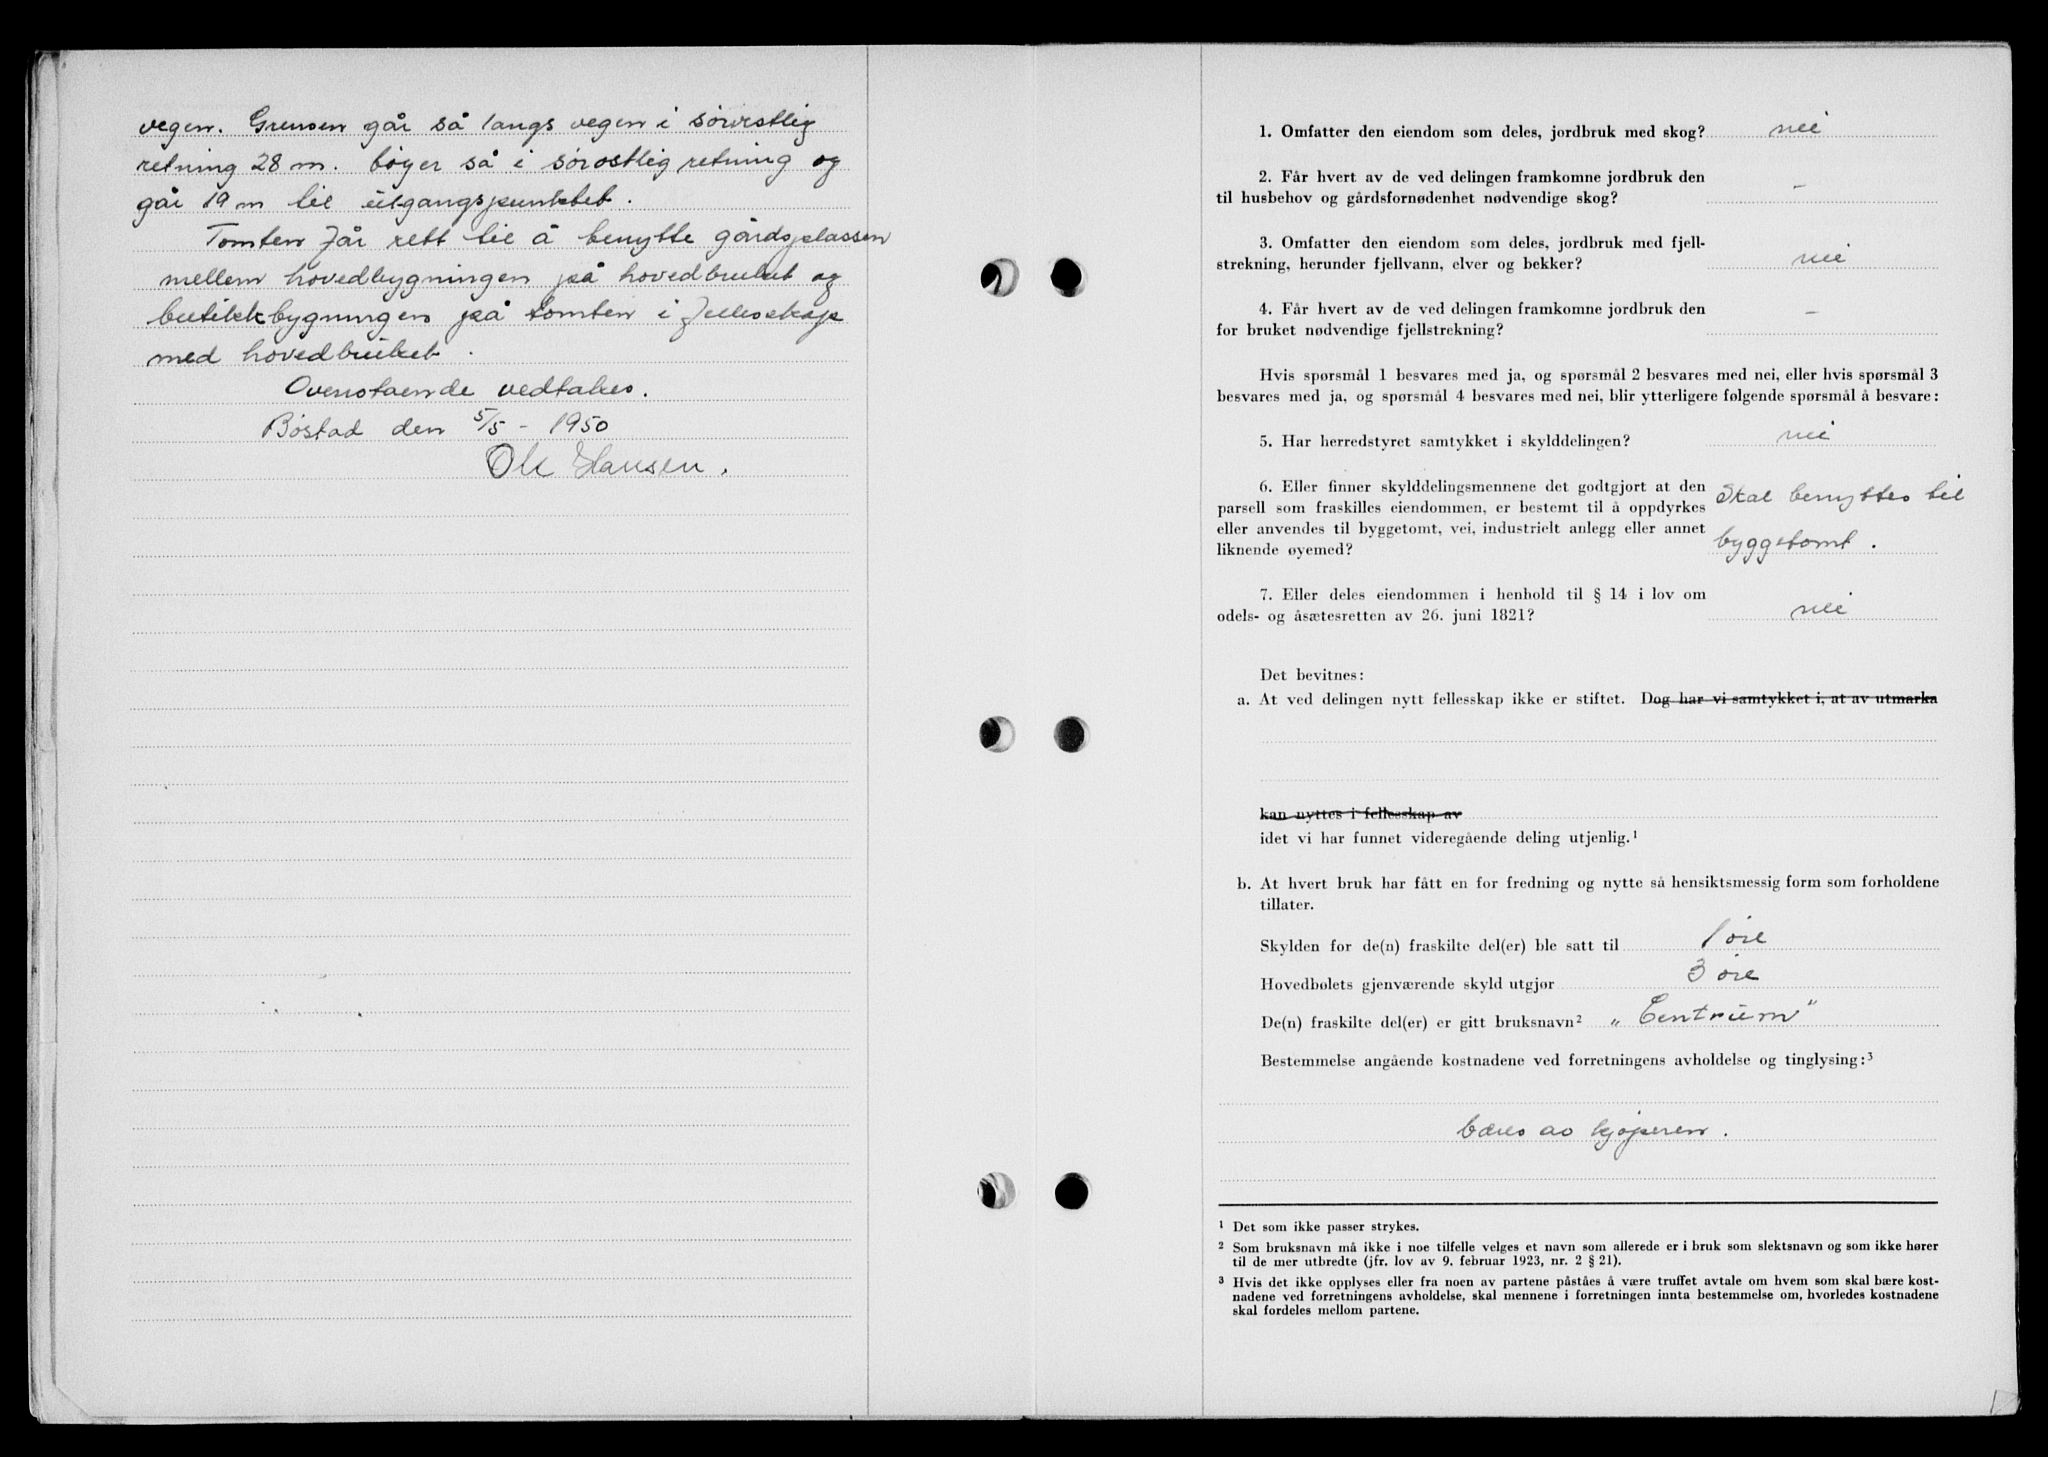 vegen. Grensen går så langs vegen i sørvestlig
retning 28 m. bøyer så i sørostlig retning og
går 19 m til utgangspunktet.
Tomten får rett til å benytte gårdsplassen
mellem hovedbygningen på hovedbruket og
butikkbygningen på tomten i fellesskap
med hovedbruket.
Ovenstaende vedtakes.
Bøstad den 5/5 - 1950
Ole Hansen.
1. Omfatter den eiendom som deles, jordbruk med skog? nei
2. Får hvert av de ved delingen framkomne jordbruk den
til husbehov og gårdsfornødenhet nødvendige skog? –
3. Omfatter den eiendom som deles, jordbruk med fjell-
strekning, herunder fjellvann, elver og bekker? nei
4. Får hvert av de ved delingen framkomne jordbruk den
for bruket nødvendige fjellstrekning? –
Hvis spørsmål 1 besvares med ja, og spørsmål 2 besvares med nei, eller hvis spørsmål 3
besvares med ja, og spørsmål 4 besvares med nei, blir ytterligere følgende spørsmål å besvare:
5. Har herredstyret samtykket i skylddelingen? nei
6. Eller finner skylddelingsmennene det godtgjort at den
parsell som fraskilles eiendommen, er bestemt til å oppdyrkes
eller anvendes til byggetomt, vei, industrielt anlegg eller annet
liknende øyemed?
Skal benyttes til
byggetomt.
7. Eller deles eiendommen i henhold til § 14 i lov om
odels- og åsætesretten av 26. juni 1821? nei
Det bevitnes:
a. At ved delingen nytt fellesskap ikke er stiftet. Dog har vi samtykket i, at av utmarka
kan nyttes i fellesskap av
idet vi har funnet videregående deling utjenlig.¹
b. At hvert bruk har fått en for fredning og nytte så hensiktsmessig form som forholdene
tillater.
Skylden for de(n) fraskilte del(er) ble satt til 1 øre
Hovedbølets gjenværende skyld utgjør 3 øre
De(n) fraskilte del(er) er gitt bruksnavn² „Centrum"
Bestemmelse angående kostnadene ved forretningens avholdelse og tinglysing:³
bæres av kjøperen.
¹ Det som ikke passer strykes.
² Som bruksnavn må ikke i noe tilfelle velges et navn som allerede er i bruk som slektsnavn og som ikke hører
til de mer utbredte (jfr. lov av 9. februar 1923, nr. 2 § 21).
³ Hvis det ikke opplyses eller fra noen av partene påståes å være truffet avtale om hvem som skal bære kost-
nadene ved forretningens avholdelse, skal mennene i forretningen innta bestemmelse om, hvorledes kostnadene
skal fordeles mellom partene.